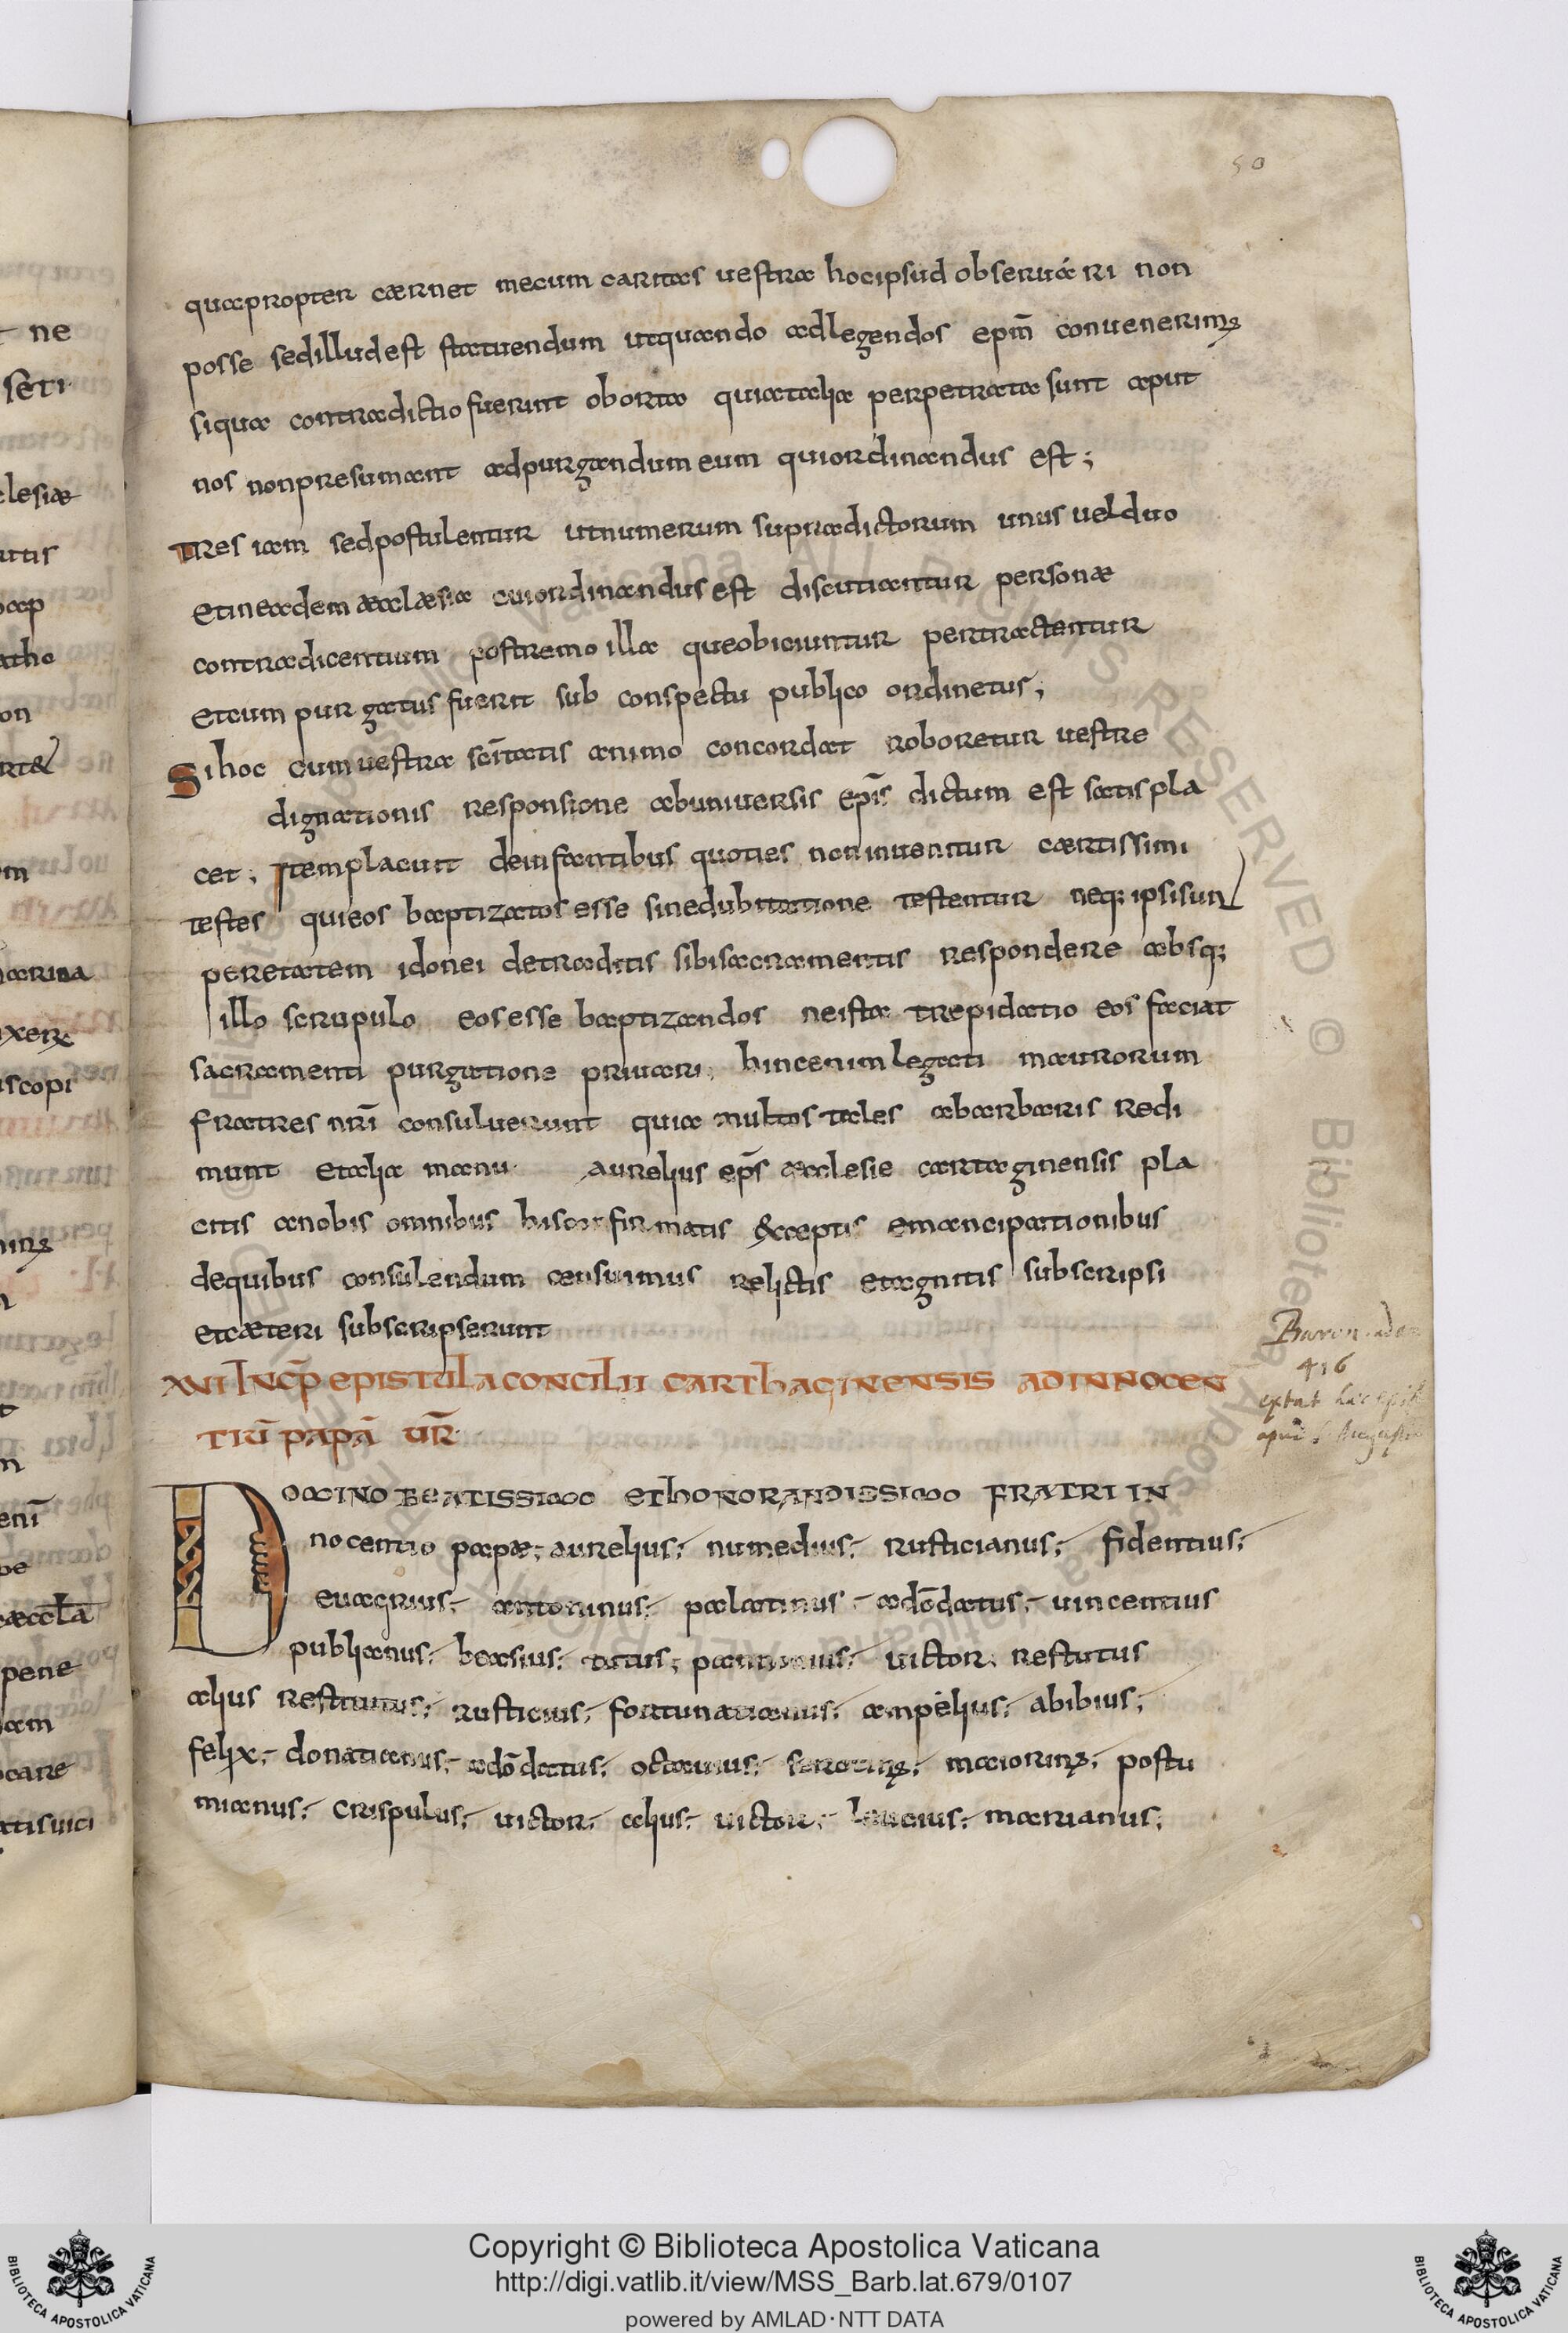 50
quapropter cernet mecum caritas uestra hocipsud obseruari non
posse sedilludest statuendum utquando adlegendos epm̄ conuenerimus
siqua contradictio fuerint oborta quiatalia perpetrata sunt aput
nos nonpresumant adpurgandum eum quiordinandus est;
tres iam sedpostulentur utnumerum supradictorum unus uelduo
etineadem æcclæsia cuiordinandus est discutiantur personæ
contradicentium postremo illa queobiciuntur pertractentur
etcum purgatus fuerit sub conspectu publico ordinetus;
Sihoc cum uestra sc̄itatis animo concordat roboretur uestre
dignationis responsione abuniuersis ep̄is dictum est satispla
cet; Itemplacuit deinfantibus quoties noninuenitur cærtissimi
testes quieos baptizatos esse sinedubitatione testentur neq; ipsisunt
peretatem idonei detraditis sibisacramentis respondere absq;
illo scrupulo eosesse baptizandos neista trepidatio eos faciat
sacramenti purgatione priuari; hincenim legati maurorum
fratres nr̄i consuluerunt quia multos tales abarbaris redi
munt etalia manu aurelius ep̄s æcclesie cartaginensis pla
citis anobis omnibus hisconfirmatis &cæptis emancipationibus
dequibus consulendum censuimus relictis etagnitis subscripsi
etcæteri subscripserunt
XVI INCP̄ EPISTULA CONCILII CARTHAGINENSIS AD INNOCEN
TIŪ PAPĀ UR̄
Baron. ad an
416
extat hæc epist
apud S. August
DOMINO BEATISSIMO ET HONORANDISSIMO FRATRI IN
nocentio papæ; aurelius; numedius; rusticianus; fidentius;
euagrius; antoninus; palatinus; adōdatus; uincentius
publianus; beasius; tutus; pannonius; uictor; restutus
alius restitutus; rusticius; fortunatianus; ampelius; abibius;
felix; donatianus; adōdatus; octauius; serotinus; maiorinus; postu
mianus; crispulus; uictor; alius; uictor; leucius; marianus;
Copyright © Biblioteca Apostolica Vaticana
http://digi.vatlib.it/view/MSS_Barb.lat.679/0107
powered by AMLAD·NTT DATA
BIBLIOTECA APOSTOLICA VATICANA
BIBLIOTECA APOSTOLICA VATICANA